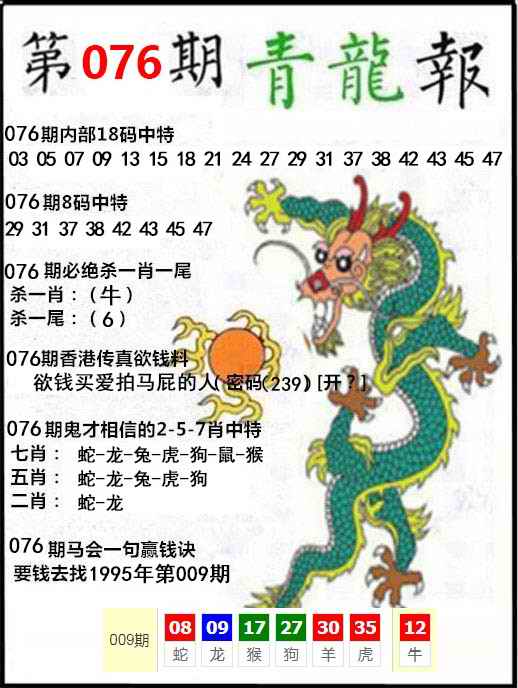 第076期青龍報
076期内部18码中特
03 05 07 09 13 15 18 21 24 27 29 31 37 38 42 43 45 47
076期8码中特
29 31 37 38 42 43 45 47
076期必绝杀一肖一尾
杀一肖：（牛）
杀一尾：（6）
076期香港传真欲钱料
欲钱买爱拍马屁的人(密码(239)[开？]
076期鬼才相信的2-5-7肖中特
七肖： 蛇-龙-兔-虎-狗-鼠-猴
五肖： 蛇-龙-兔-虎-狗
二肖： 蛇-龙
076期马会一句赢钱诀
要钱去找1995年第009期
009期 08 09 17 27 30 35 12
蛇 龙 猴 狗 羊 虎 牛